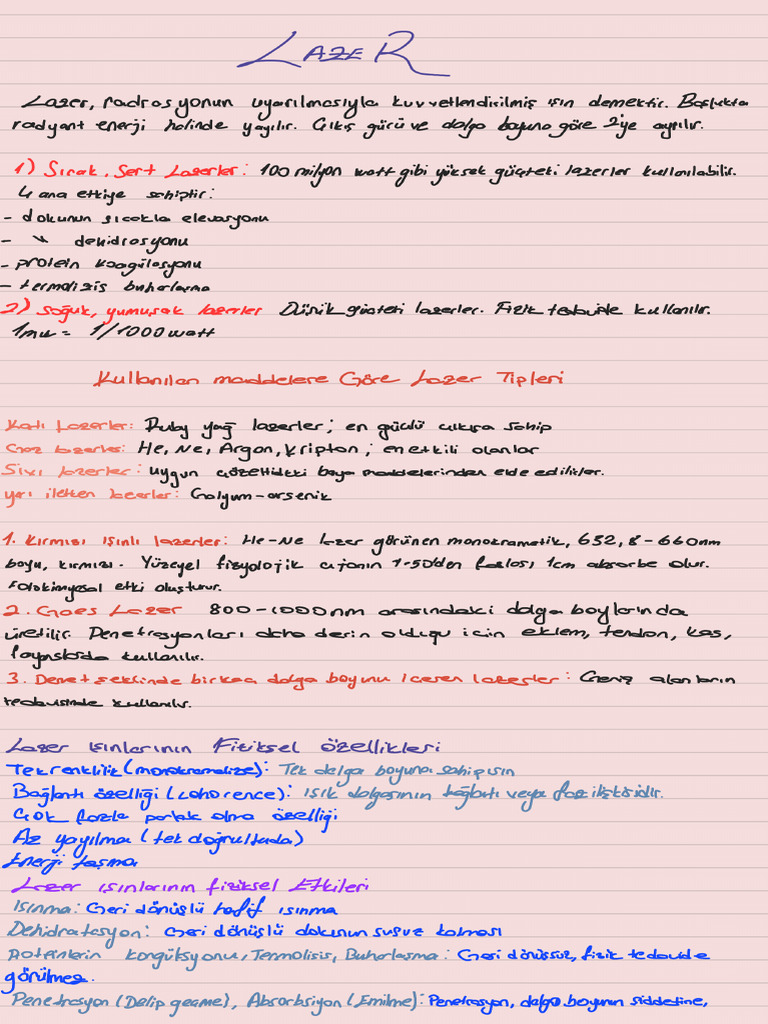 LAZER
Lazer, radrosyonun uyarılmasıyla kuvvetlendirilmiş ışın demektir. Boşlukta
radyant enerji halinde yayılır. Çıkış gücü ve dalga boyuna göre 2'ye ayrılır.
1) Sıcak, Sert Lazerler: 100 milyon watt gibi yüksek güçteki lazerler kullanılabilir.
4 ana etkiye sahiptir:
- dokunun sıcakla elevasyonu
- " dehidrasyonu
- protein koagülasyonu
- termolizis buharlaşma
2) soğuk, yumuşak lazerler Düşük güçteki lazerler. Fizik tedavide kullanılır.
1mw = 1/1000 watt
Kullanılan maddelere Göre Lazer Tipleri
Katı Lazerler: Ruby yağ lazerler; en güçlü çıkışa sahip
Gaz lazerler: He, Ne, Argon, Kripton; en etkili olanlar
Sıvı lazerler: uygun çözeltideki boya maddelerinden elde edilirler.
yarı iletken lazerler: Galyum-arsenik
1. Kırmızı ışınlı lazerler: He-Ne lazer görünen monokramatik, 632,8-660nm
boyu, kırmızı. Yüzeyel fizyolojik 1-50'den fazlası 1cm absorbe olur.
Fotokimyasal etki oluşturur.
2. Goes Lazer 800-1000nm arasındaki dalga boylarında
üretilir. Penetrasyonları daha derin olduğu için eklem, tendon, kas,
kullanılır.
3. Demet şeklinde birkaç dalga boyunu içeren lazerler: Geniş alanların
tedavisinde kullanılır.
Lazer ışınlarının Fiziksel özellikleri
Tek renklilik (monokramalize): Tek dalga boyuna sahip ışın
Bağlantı özelliği (Cohorence): Işık dalgasının bağlantı veya faz ilişkisidir.
Çok fazla parlak olma özelliği
Az yayılma (tek doğrultuda)
Enerji taşıma
Lazer ışınlarının fiziksel Etkileri
Isınma: Geri dönüşlü hafif ısınma
Dehidratasyon: Geri dönüşlü dokunun susuz kalması
Proteinlerin kongülsyonu, Termolisis, Buharlaşma: Geri dönüşsüz, fizik tedavide
görülmez.
Penetrasyon (Delip geçme), Absorbsiyon (Emilme): Penetrasyon, dalga boyunun şiddetine,